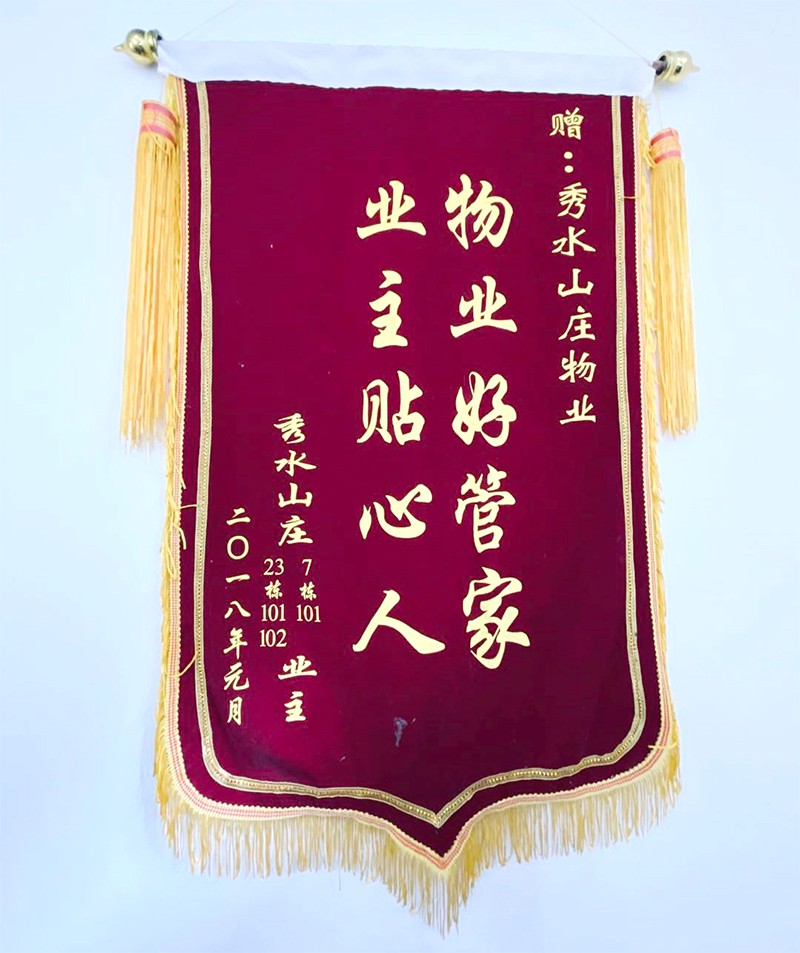 赠：秀水山庄物业
物业好管家
业主贴心人
秀水山庄
7栋101
23栋101
102
业主
二〇一八年元月